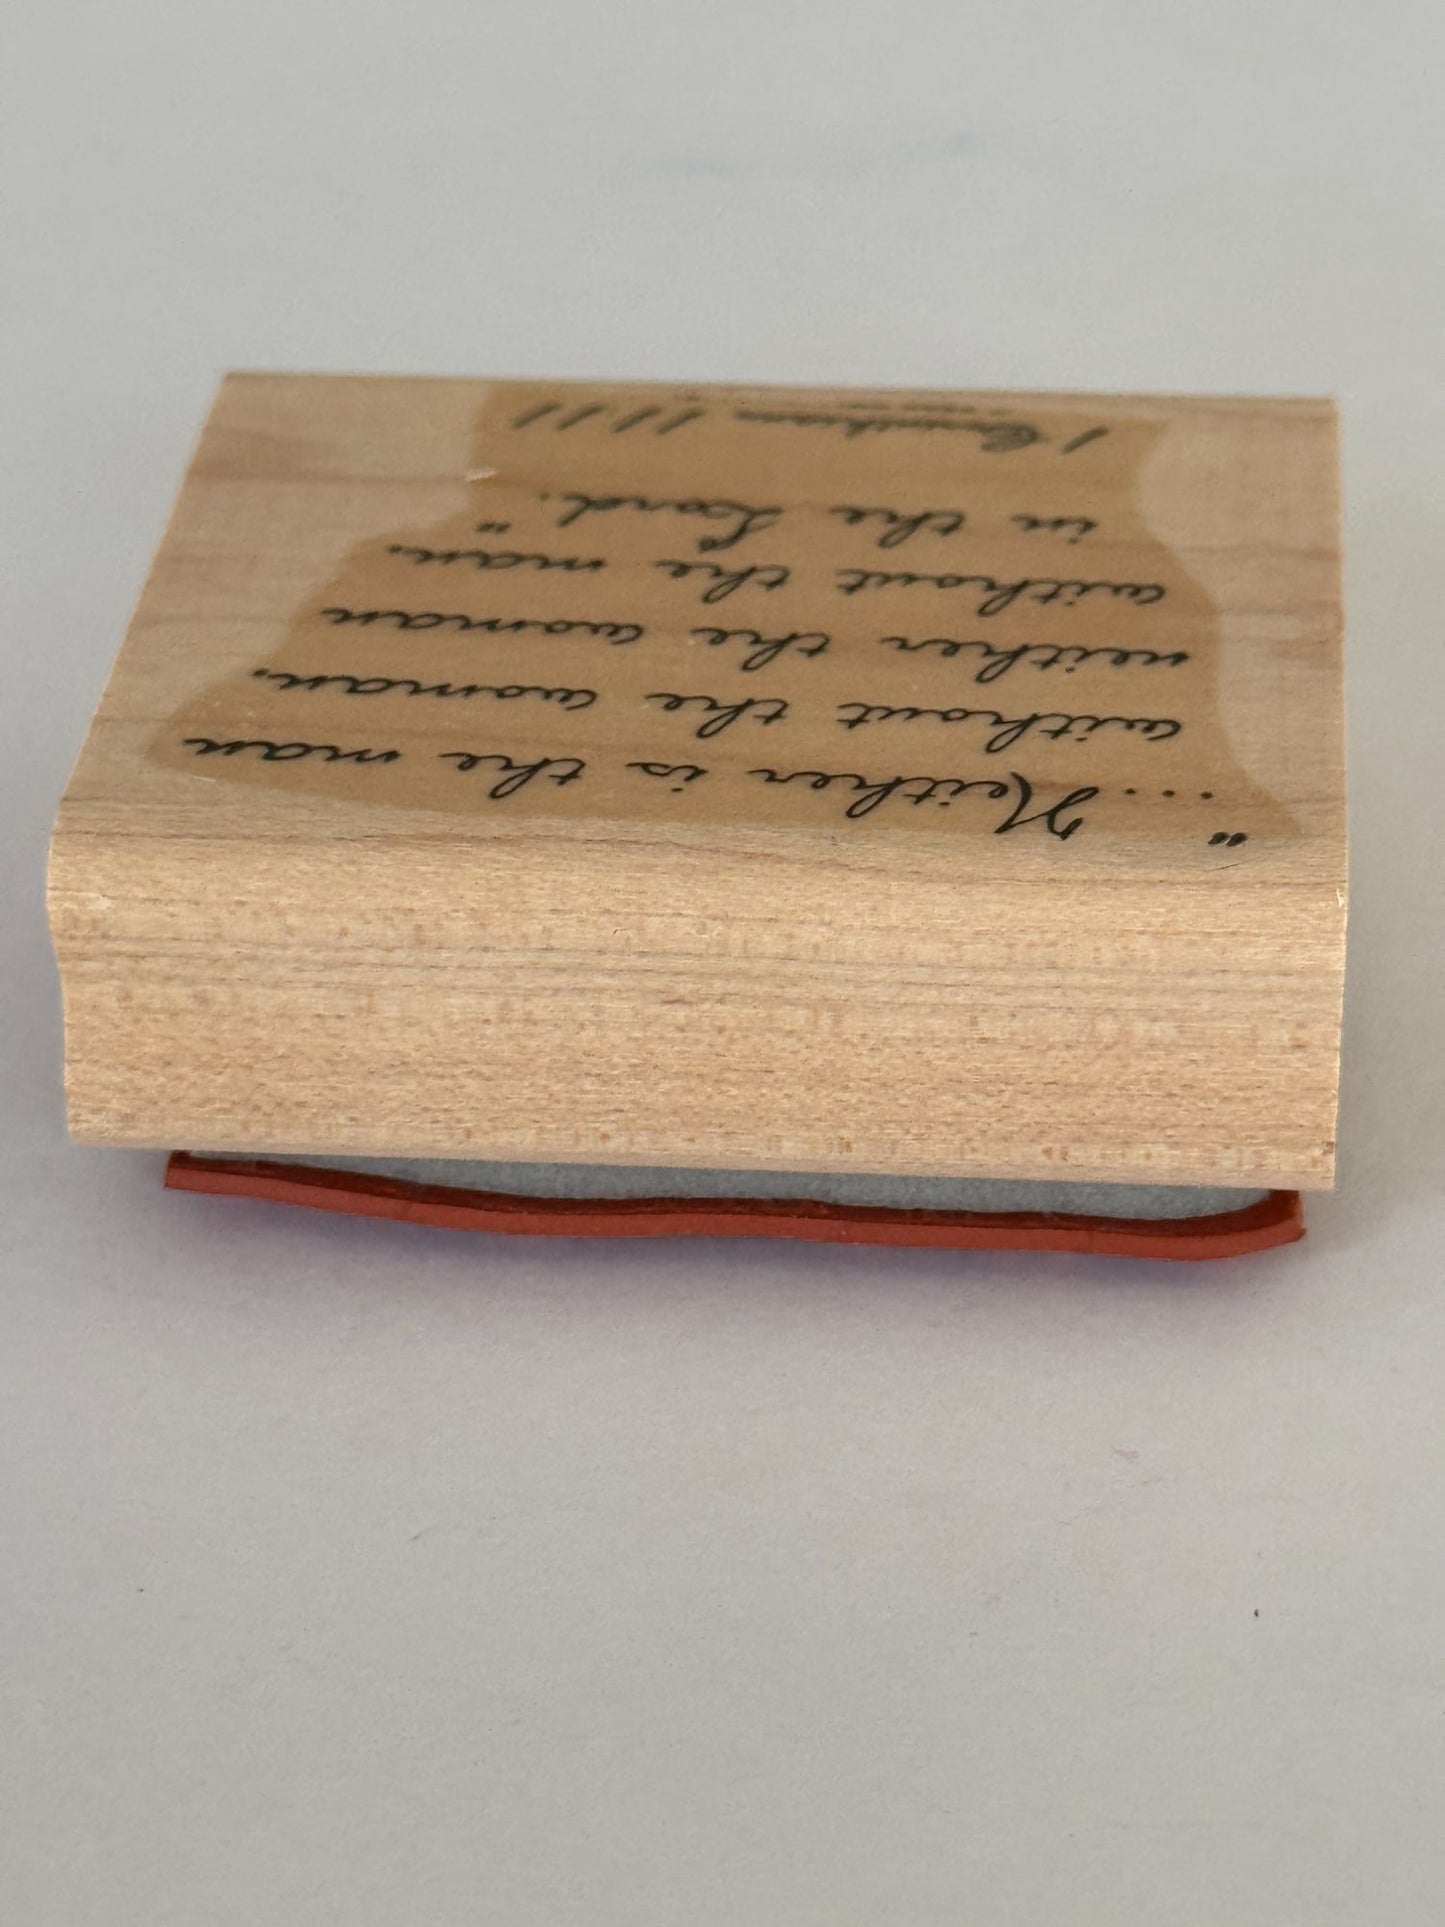 "...Neither is the man
without the woman,
neither the woman
without the man,
in the Lord."
1 Corinthians 11:11